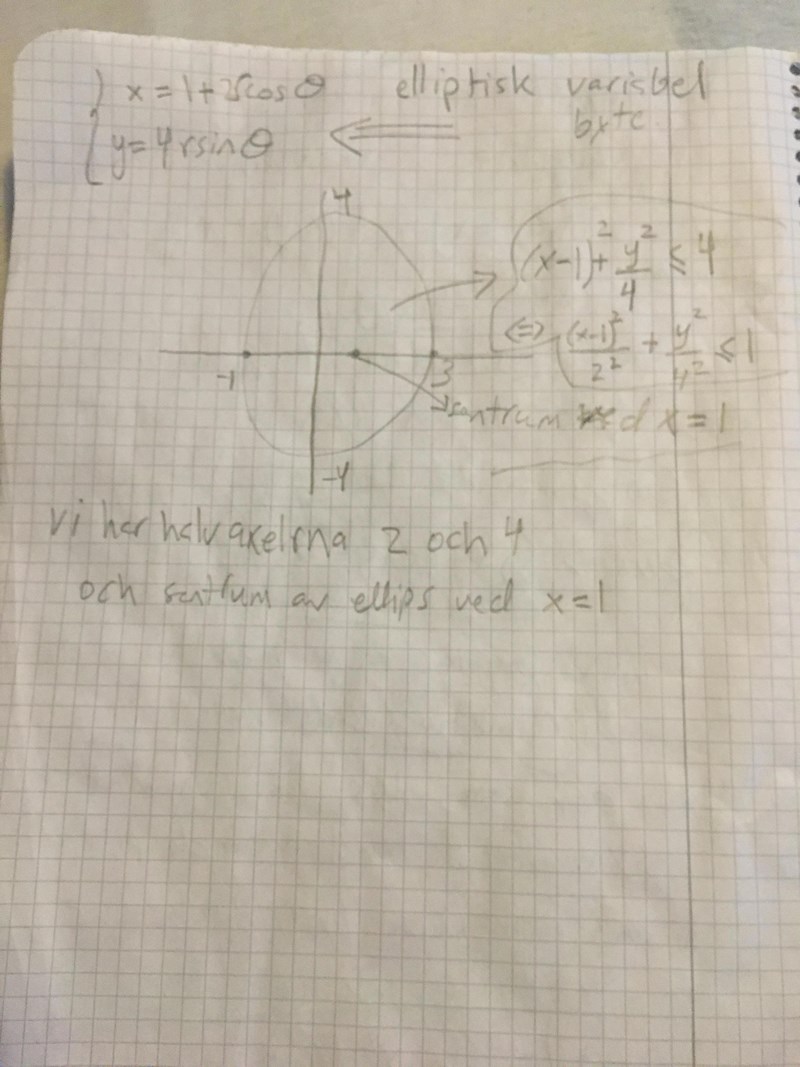 x = 1+2rcosθ elliptisk variabel
y = 4rsinθ ⇐ byte
4
(x-1)² + y²/4 ≤ 4
⇔ (x-1)²/2² + y²/4² ≤ 1
-1 3
sentrum ved x = 1
-4
vi har halvaxelrna 2 och 4
och sentrum av ellips ved x=1